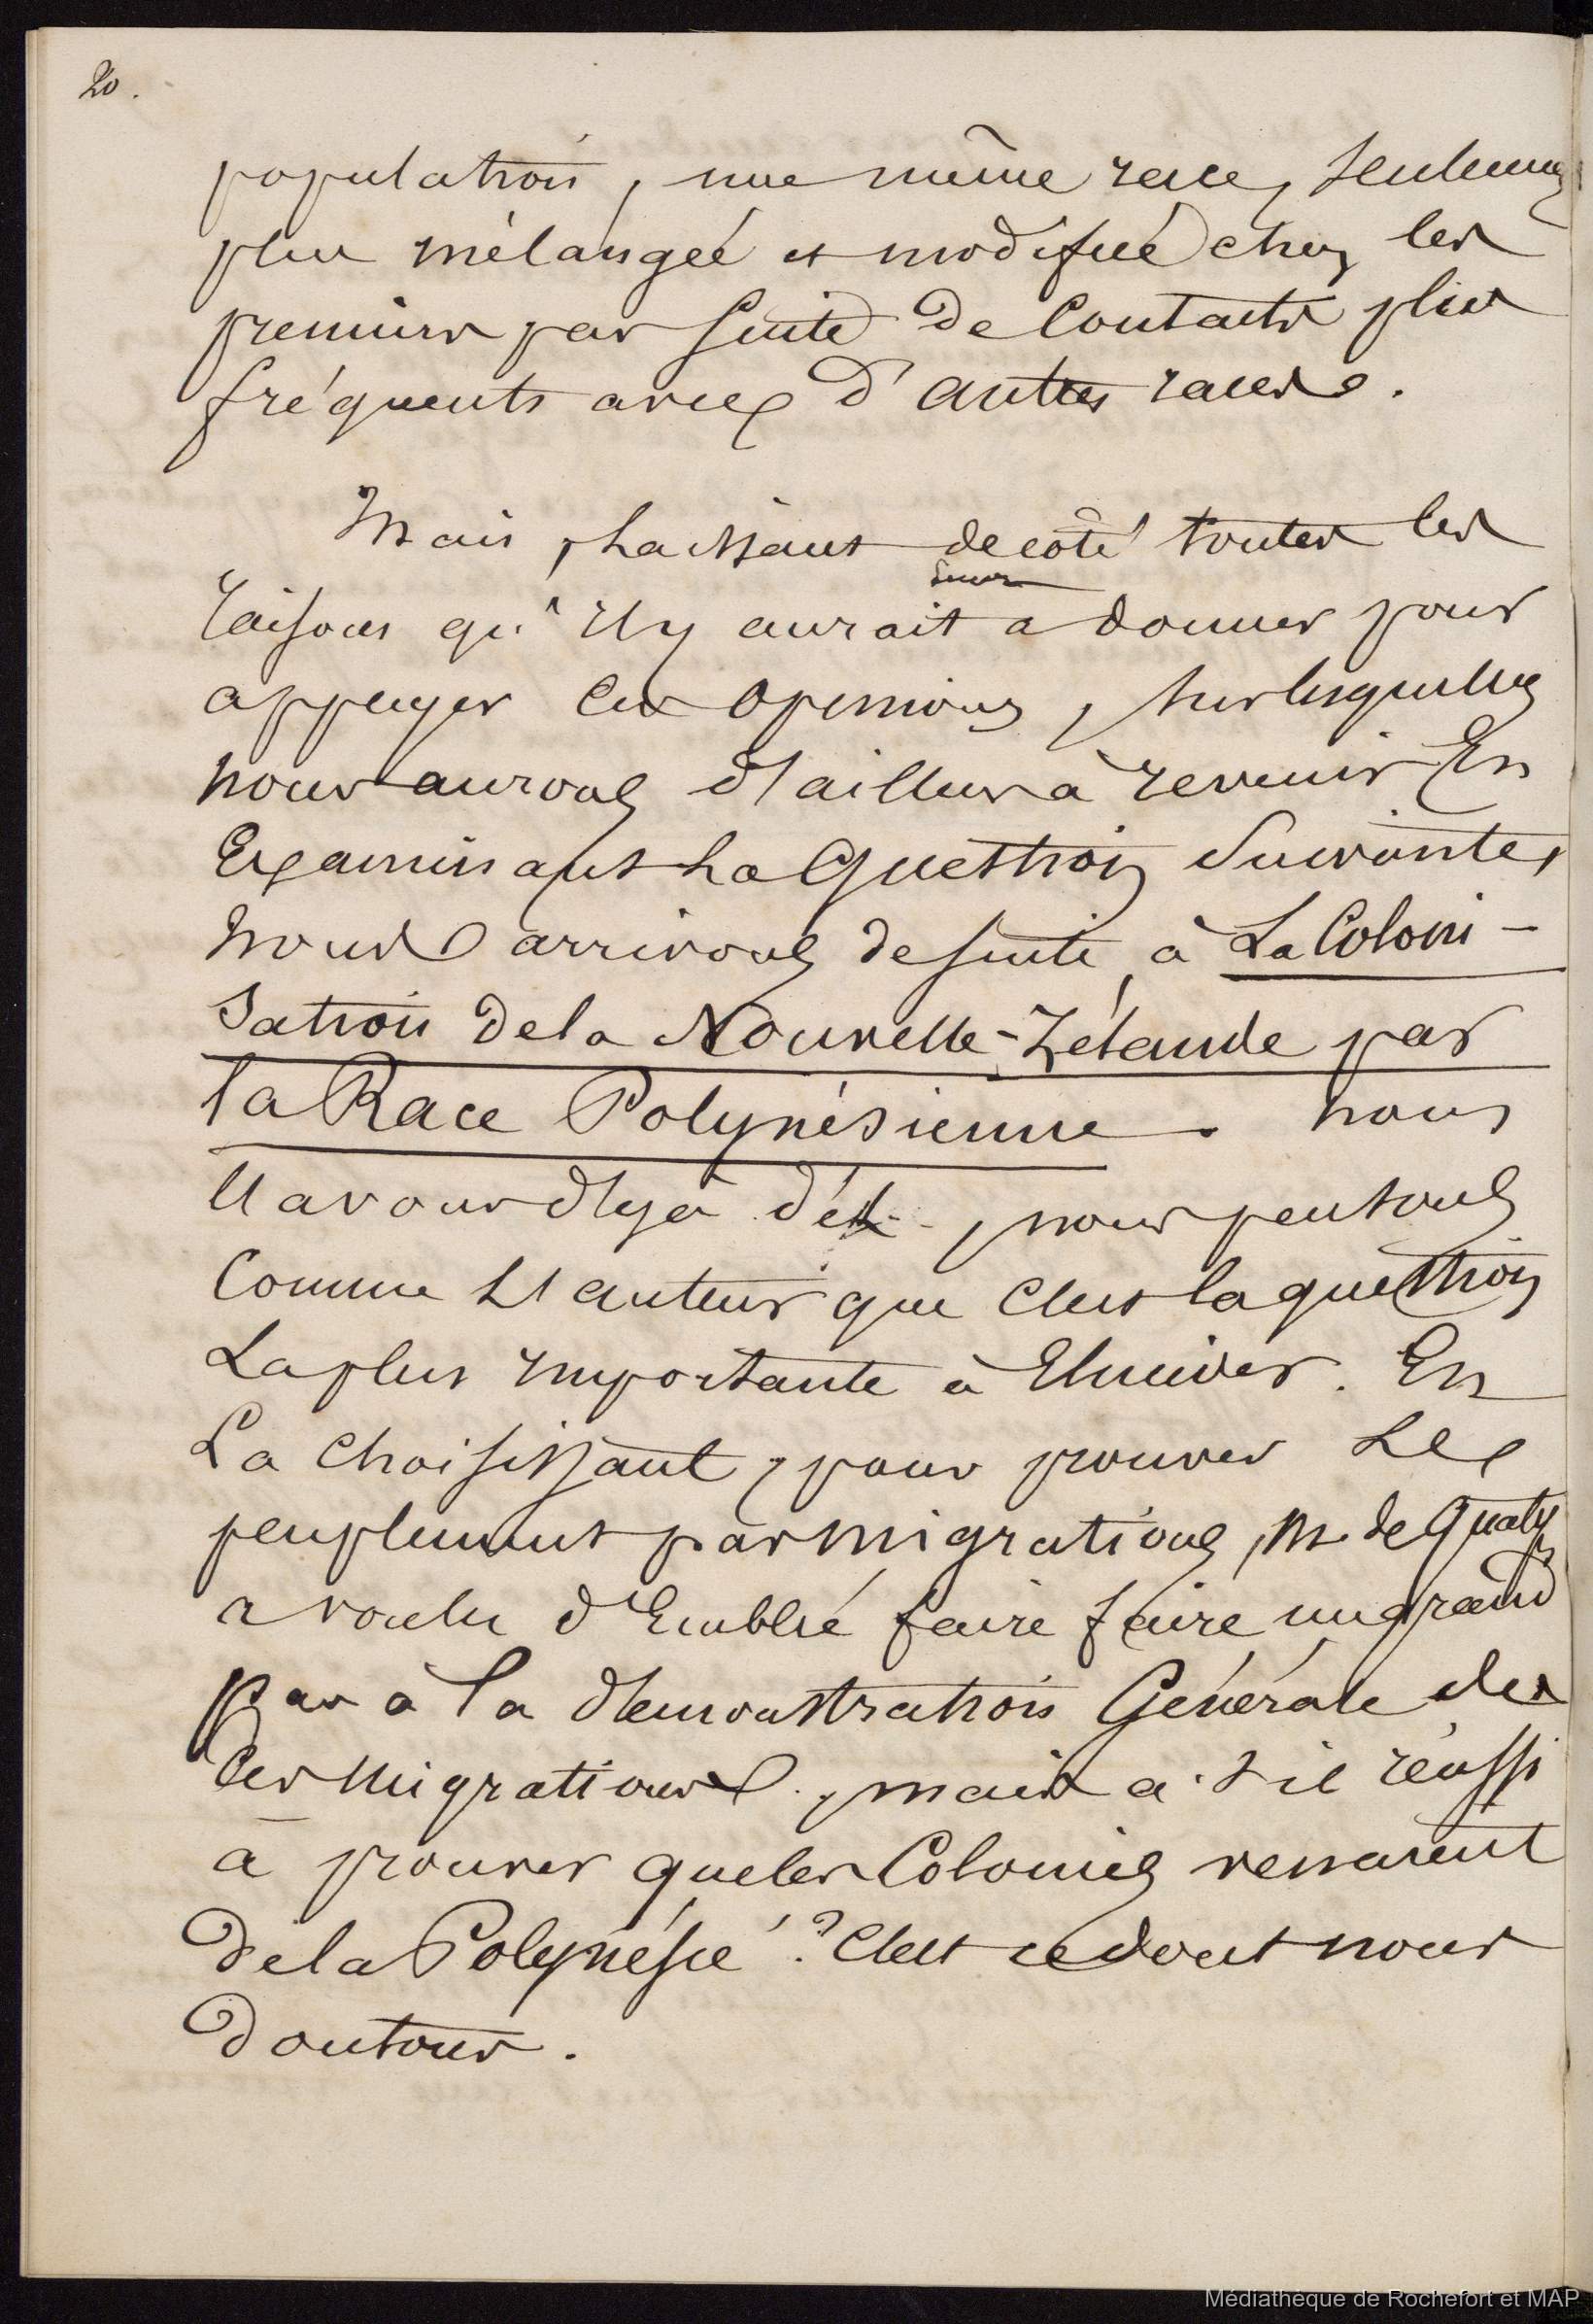 20.
population, une même race, seulement
plus mélangée et modifiée chez les
premiers par suite de contacts plus
fréquents avec d'autres races.
Mais, laissant de côté toutes les
raisons qu'il y aurait à donner pour
appuyer ces opinions, sur lesquelles
nous aurons d'ailleurs à revenir en
examinant la question suivante,
nous arrivons de suite, à La Coloni-
sation de la Nouvelle-Zélande par
la Race Polynésienne. nous
l'avons déjà dit, nous pensons
comme l'auteur que c'est la question
la plus importante à élucider. En
la choisissant, pour prouver le
peuplement par migrations, M. de Quatr
a voulu d'emblée faire faire un grand
pas à la démonstration Générale de
ces migrations, mais a-t-il réussi
à prouver que les Colonies venaient
de la Polynésie? C'est ce dont nous
doutons.
Médiathèque de Rochefort et MAP